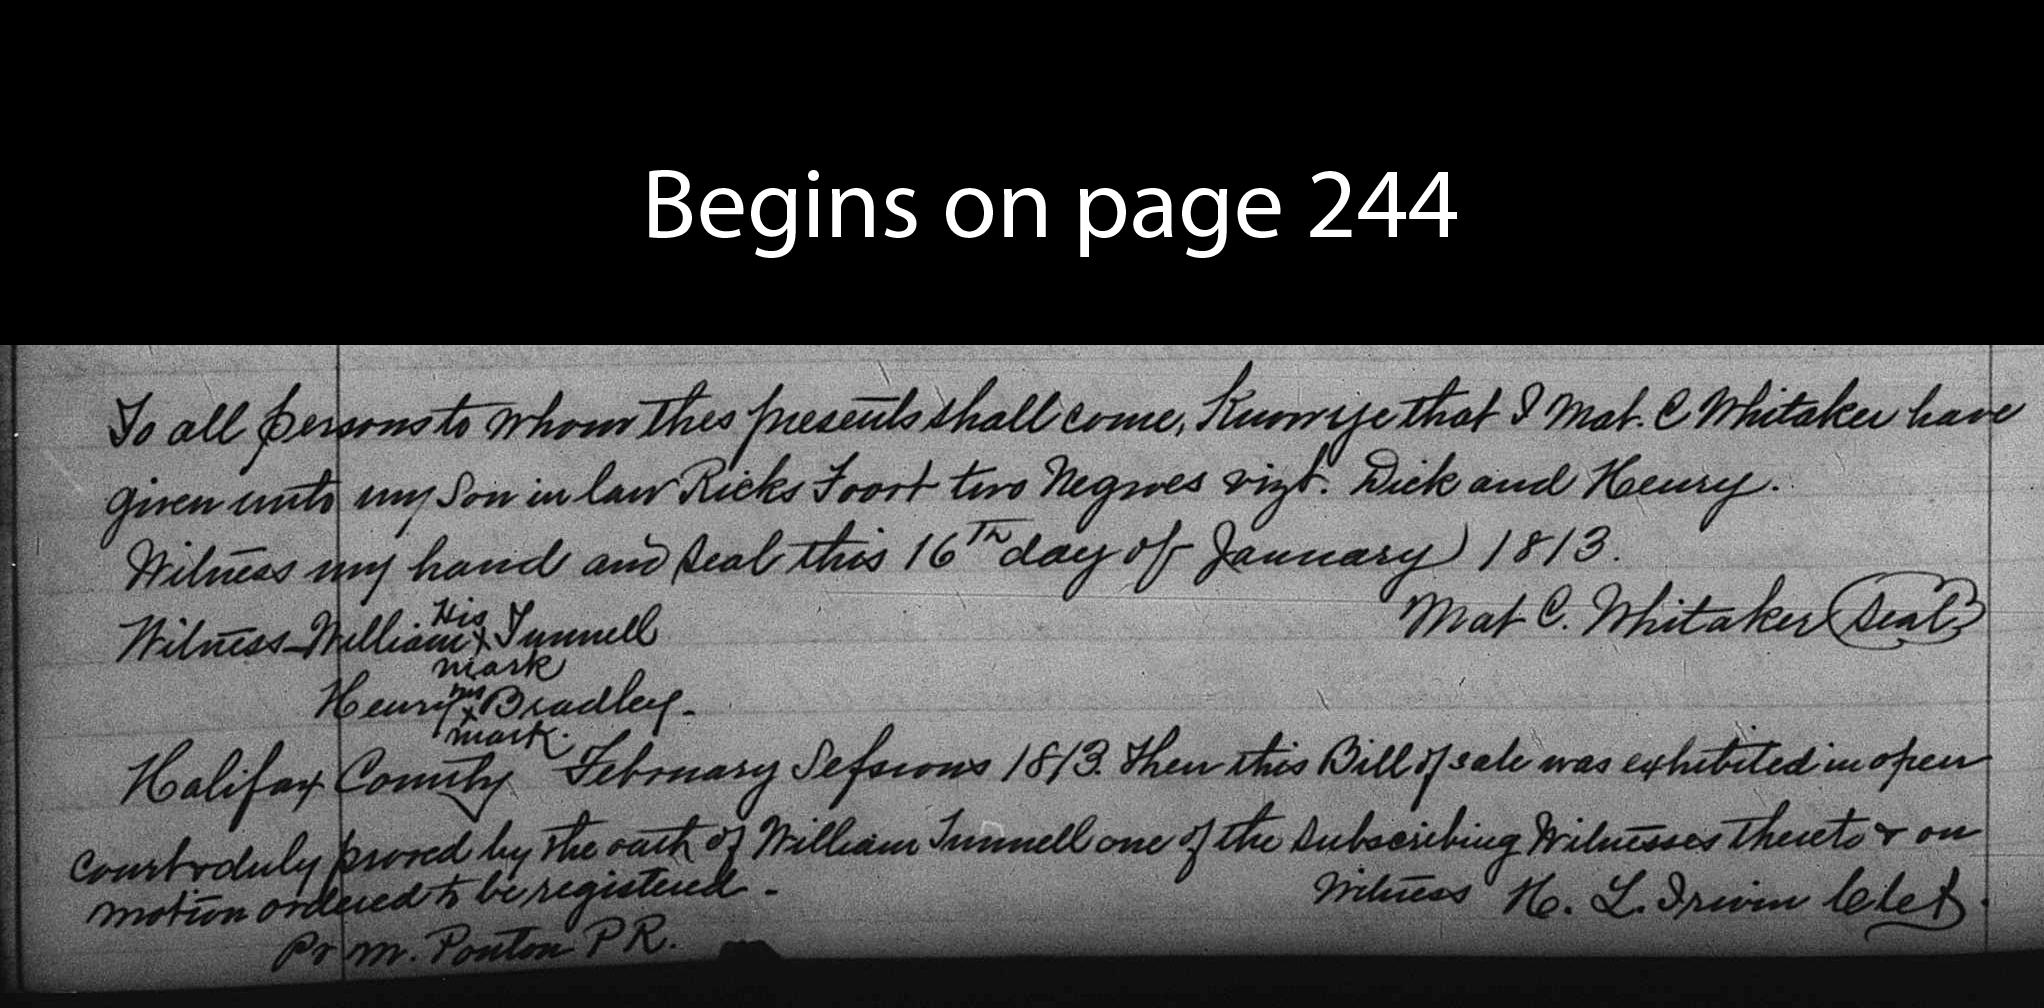 Begins on page 244
To all persons to whom thes presents shall come, Know ye that I Mat. C Whitaker have
given unto my Son in law Ricks Foort two Negroes vizt. Dick and Henry.
Witness my hand and seal this 16TH day of January 1813.
Mat C. Whitaker Seal
His
Witness - William x Tunnell
mark
his
Henry x Bradley -
mark.
Halifax County February Sessions 1813. Then this Bill of sale was exhibited in open
court & duly proved by the oath of William Tunnell one of the subscribing Witnesses thereto & on
motion ordered to be registered -
Witness H. L. Irwin
Pr M. Ponton P R.